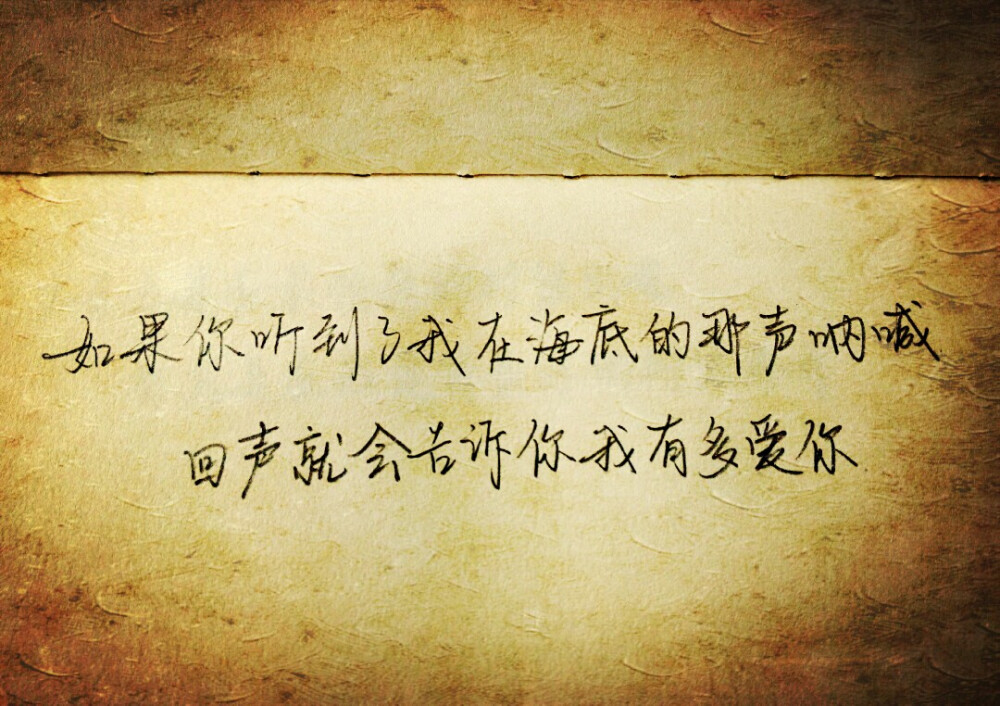 如果你听到了我在海底的那声呐喊
回声就会告诉你我有多爱你